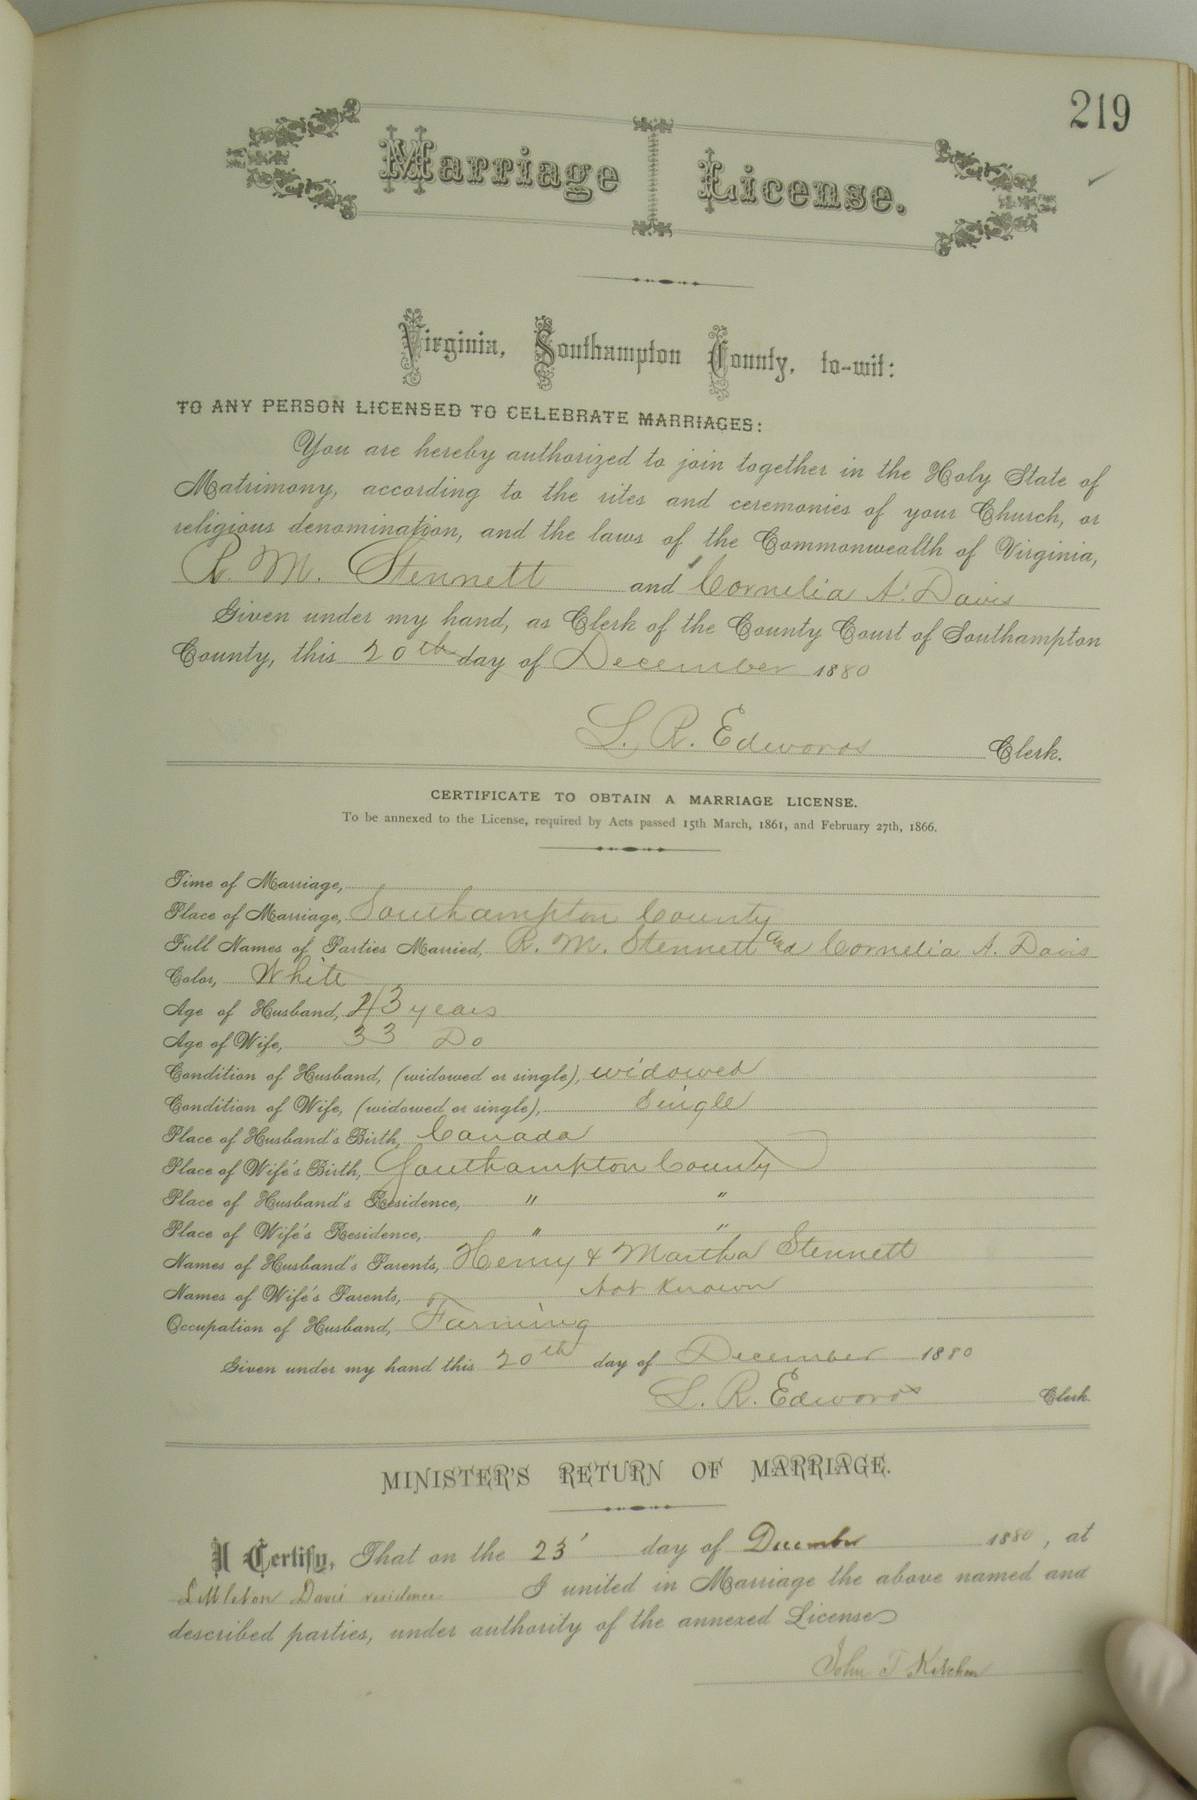 219
Marriage License.
Virginia, Southampton County, to-wit:
TO ANY PERSON LICENSED TO CELEBRATE MARRIAGES:
You are hereby authorized to join together in the Holy State of
Matrimony, according to the rites and ceremonies of your Church, or
religious denomination, and the laws of the Commonwealth of Virginia,
R. M. Stennett and Cornelia A. Davis
Given under my hand, as Clerk of the County Court of Southampton
County, this 20th day of December 1880
L. R. Edwards Clerk.
CERTIFICATE TO OBTAIN A MARRIAGE LICENSE.
To be annexed to the License, required by Acts passed 15th March, 1861, and February 27th, 1866.
Time of Marriage,
Place of Marriage, Southampton County
Full Names of Parties Married, R. M. Stennett and Cornelia A. Davis
Color, White
Age of Husband, 43 years
Age of Wife, 33 Do
Condition of Husband, (widowed or single), widowed
Condition of Wife, (widowed or single), Single
Place of Husband's Birth, Canada
Place of Wife's Birth, Southampton County
Place of Husband's Residence, " "
Place of Wife's Residence, " "
Names of Husband's Parents, Henry & Martha Stennett
Names of Wife's Parents, Not Known
Occupation of Husband, Farming
Given under my hand this 20th day of December 1880
L. R. Edwards Clerk.
MINISTER'S RETURN OF MARRIAGE.
I Certify, That on the 23' day of December 1880, at
Littleton Davis residence I united in Marriage the above named and
described parties, under authority of the annexed License
John T Kitchen